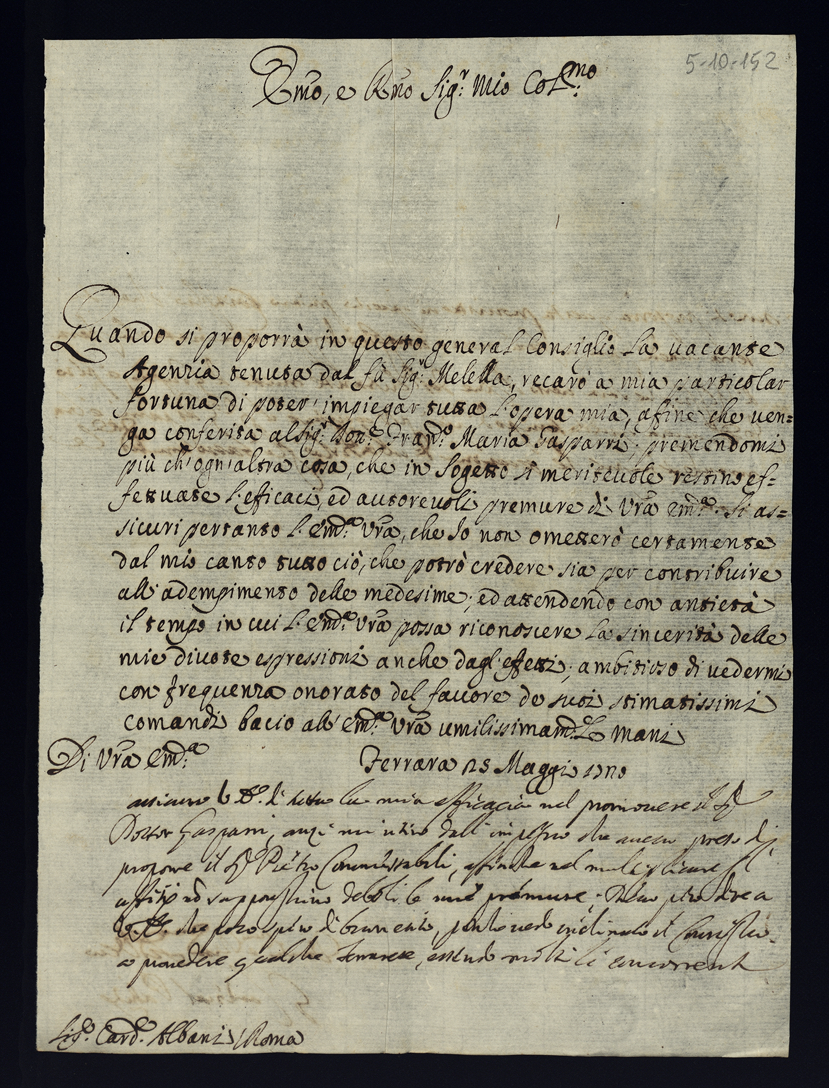 5-10-152
Emo, e Rmo Sigr. mio Colmo.
Quando si proporrà in questo general Consiglio la vacante
Agenzia tenuta dal fù Sigr. Melella, recarò a mia particolar
fortuna di poter' impiegar tutta l'opera mia, afine che ven=
ga conferita al Sigr. Dott. Fran.co Maria Gasparri; premendomi
più ch'ogn'altra cosa, che in sogetto sì meritevole restino ef=
fettuate l'efficaci, ed autorevoli premure di Vra Emza. Si as=
sicuri pertanto l'Emza Vra, che Io non ometterò certamente
dal mio canto tutto ciò, che potrò credere sia per contribuire
all'adempimento delle medesime; ed attendendo con antietà
il tempo in cui l'Emza Vra possa riconoscere la sincerità delle
mie divote espressioni anche dagl'effetti; ambitioso di vedermi
con frequenza onorato del favore de suoi stimatissimi
comandi bacio all'Emza Vra umilissimamte. le mani
Di Vra Emza Ferrara Maggio
di tutta la mia efficacia nel promovere il Sr
Dottor Gasparri, anzi dall'impegno che preso di
propore il Sr Pietro affinche nel moltiplicare
deboli le mie premure.
che poco spero di buon esito, il Consiglio
a provedere qualche Ferrarese, essendo molti li concorrenti
Sigr. Card. Albani / Roma